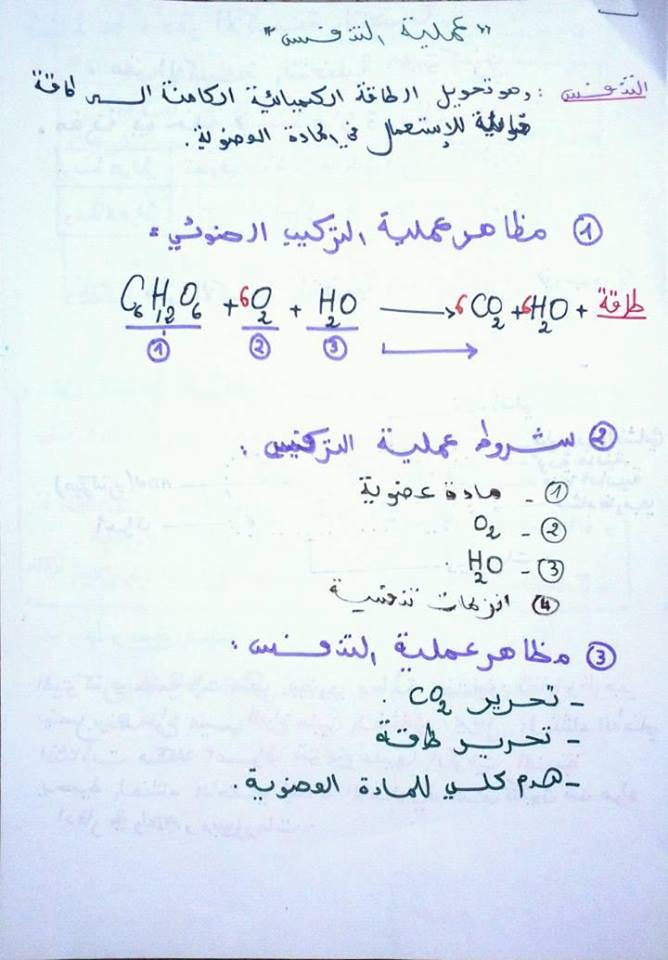 "عملية التنفس"
التنفس : وهو تحويل الطاقة الكيميائية الكامنة الى طاقة
قابلة للإستعمال في المادة العضوية.
① مظاهر عملية التركيب الضوئي:
C₆H₁₂O₆ + 6O₂ + H₂O → 6CO₂ + 6H₂O + طاقة
① ② ③
② شروط عملية :
① - مادة عضوية
② - O₂
③ - H₂O
④ انزيمات تنفسية
③ مظاهر عملية التنفس :
- تحرير CO₂
تحرير طاقة
- هدم كلي للمادة العضوية.